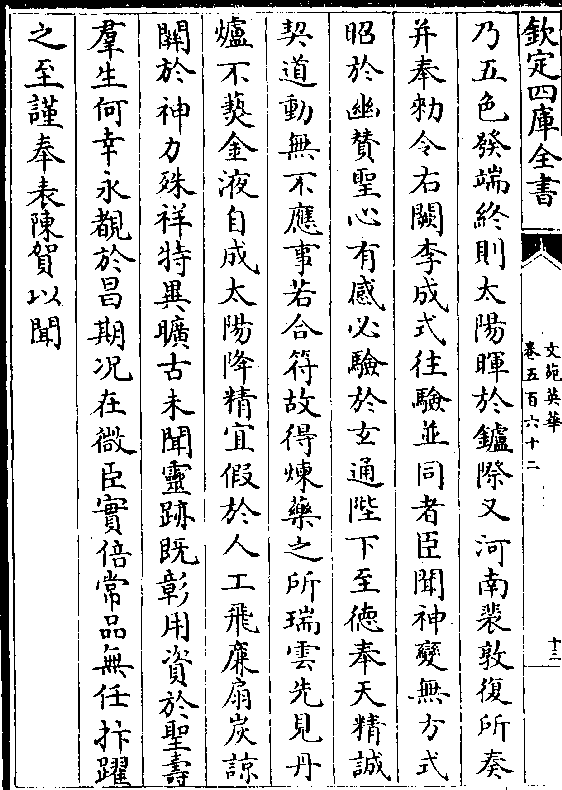 欽定四庫全書
文苑英華
卷五百六十二
十三
乃五色發端終則太陽暉於鑪際又河南裴敦復所奏
并奉勑令右闕李成式往驗並同者臣聞神變無方式
昭於幽贊聖心有感必驗於玄通陛下至德奉天精誠
契道動無不應事若合符故得煉藥之所瑞雲先見丹
爐不爇金液自成太陽降精宜假於人工飛廉扇炭諒
闗於神力殊祥特異曠古未聞靈跡既彰用資於聖壽
羣生何幸永覩於昌期况在微臣實倍常品無任抃躍
之至謹奉表陳賀以聞